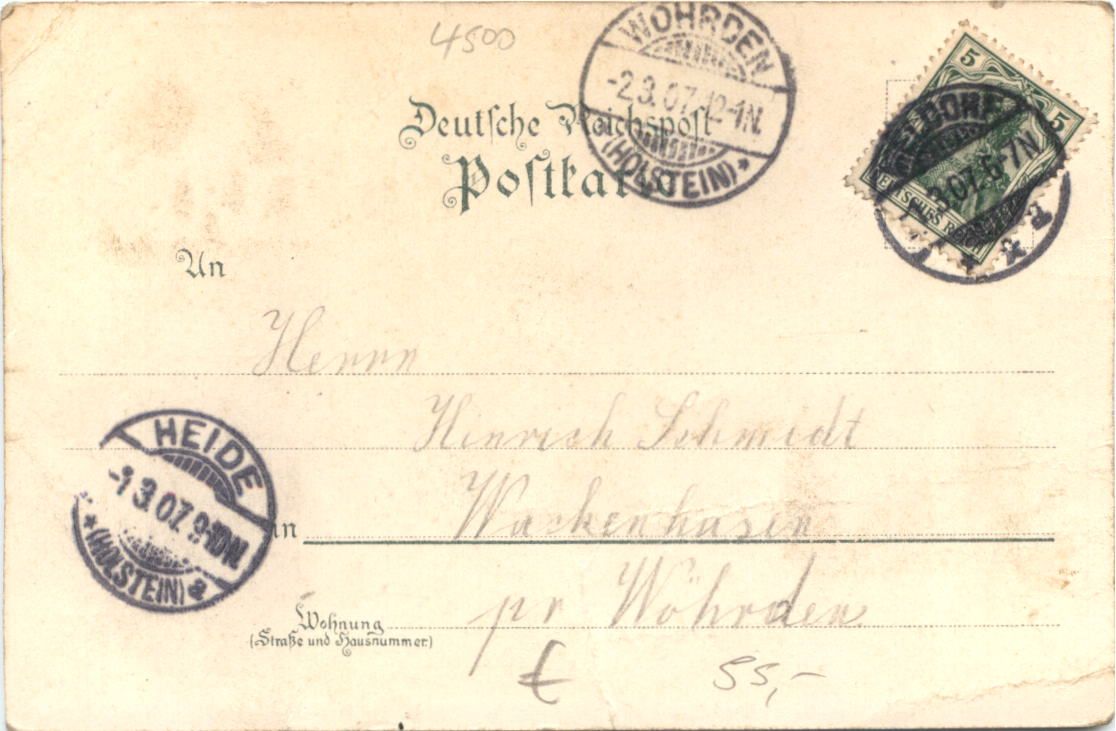 4500
WÖHRDEN
-2.3.07.12-1N.
(HOLSTEIN) *
Deutsche Reichspost
Postkarte
5
5
MELDORF
3.07.6-7N
DEUTSCHES REICH
* * a
An
Herrn
Hinrich Schmidt
HEIDE
-1.3.07.9-10N.
* (HOLSTEIN) a
in
Wackenhusen
Wohnung
(Straße und Hausnummer)
pr Wöhrden
€ 55,-